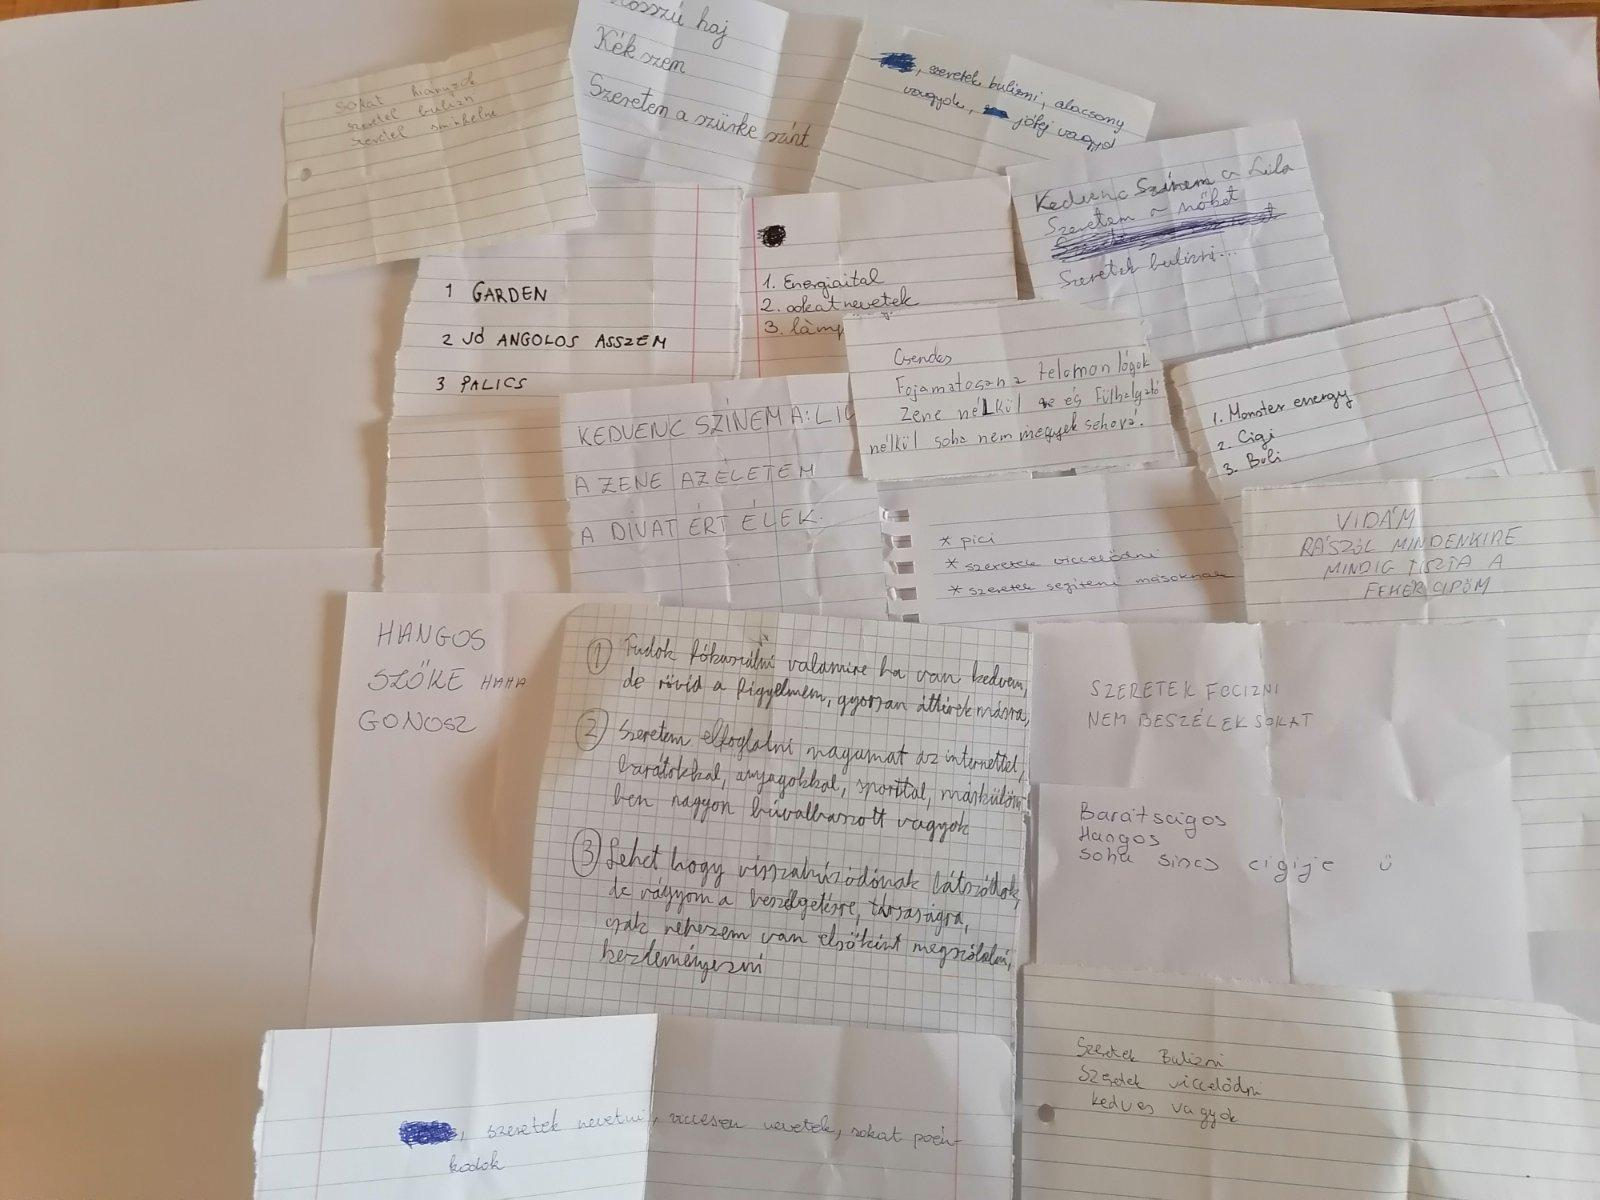 sokat hiányzok
szeretek bulizni
szeretek sminkelni
Hosszú haj
Kék szem
Szeretem a szürke színt
, szeretek bulizni, alacsony
vagyok, jófej vagyok
Kedvenc Színem a Lila
Szeretem a nőket
Szeretek bulizni...
1 GARDEN
2 JÓ ANGOLOS ASSZEM
3 PALICS
1. Energiaital
2. sokat nevetek
3. lámp
Csendes
Fojamatosan a telomon lógok
Zene nélkül és Fülhalgató
nélkül soha nem megyek sehová.
1. Monster energy
2. Cigi
3. Buli
KEDVENC SZÍNEM A: LIL
A ZENE AZ ÉLETEM
A DIVAT ÉRT ÉLEK.
* pici
* szeretek viccelődni
* szeretek segíteni másoknak
VIDÁM
RÁSZÓL MINDENKIRE
MINDIG TISZTA A
FEHÉR CIPŐM
HANGOS
SZŐKE HAHA
GONOSZ
1 Tudok fókuszálni valamire ha van kedvem,
de rövid a figyelmem, gyorsan áttérek másra,
2 Szeretem elfoglalni magamat az internettel,
barátokkal, anyagokkal, sporttal, máskülön
ben nagyon búvalbaszott vagyok
3 Lehet hogy visszahúzódónak látszódok,
de vágyom a beszélgetésre, társaságra,
csak nehezem van elsőként megszólalni,
kezdeményezni
SZERETEK FOCIZNI
NEM BESZÉLEK SOKAT
Barátságos
Hangos
soha sincs cigije ü
Szeretek Bulizni
Szeretek viccelődni
kedves vagyok
, szeretek nevetni, viccesen nevetek, sokat poén-
kodok